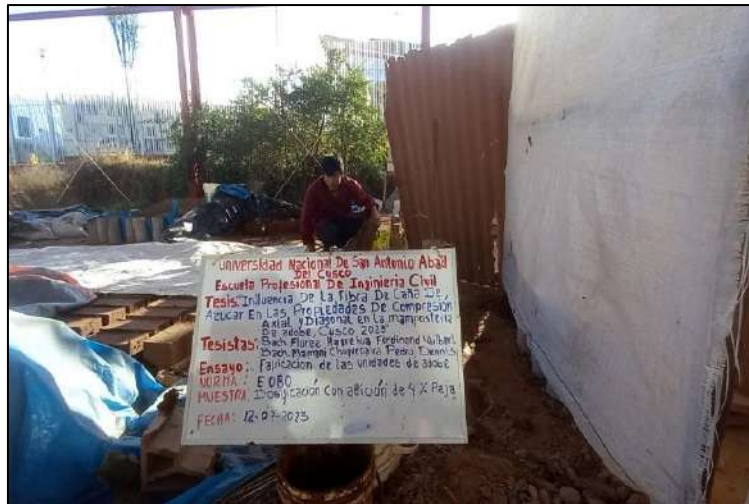 Universidad Nacional De San Antonio Abad
Del Cusco
Escuela Profesional De Ingenieria Civil
Tesis: "Influencia De La Fibra De Caña De
Azucar En Las Propiedades De Compresión
Axial y Diagonal en la mamposteria
De adobe, Cusco 2023"
Tesistas: Bach. Florez Ferdinand
Bach. Mamani Pedro Dennis
Ensayo: Fabricación de las unidades de adobe
NORMA: E 080
MUESTRA: Dosificación con adición de 4% Paja
FECHA: 12-07-2023